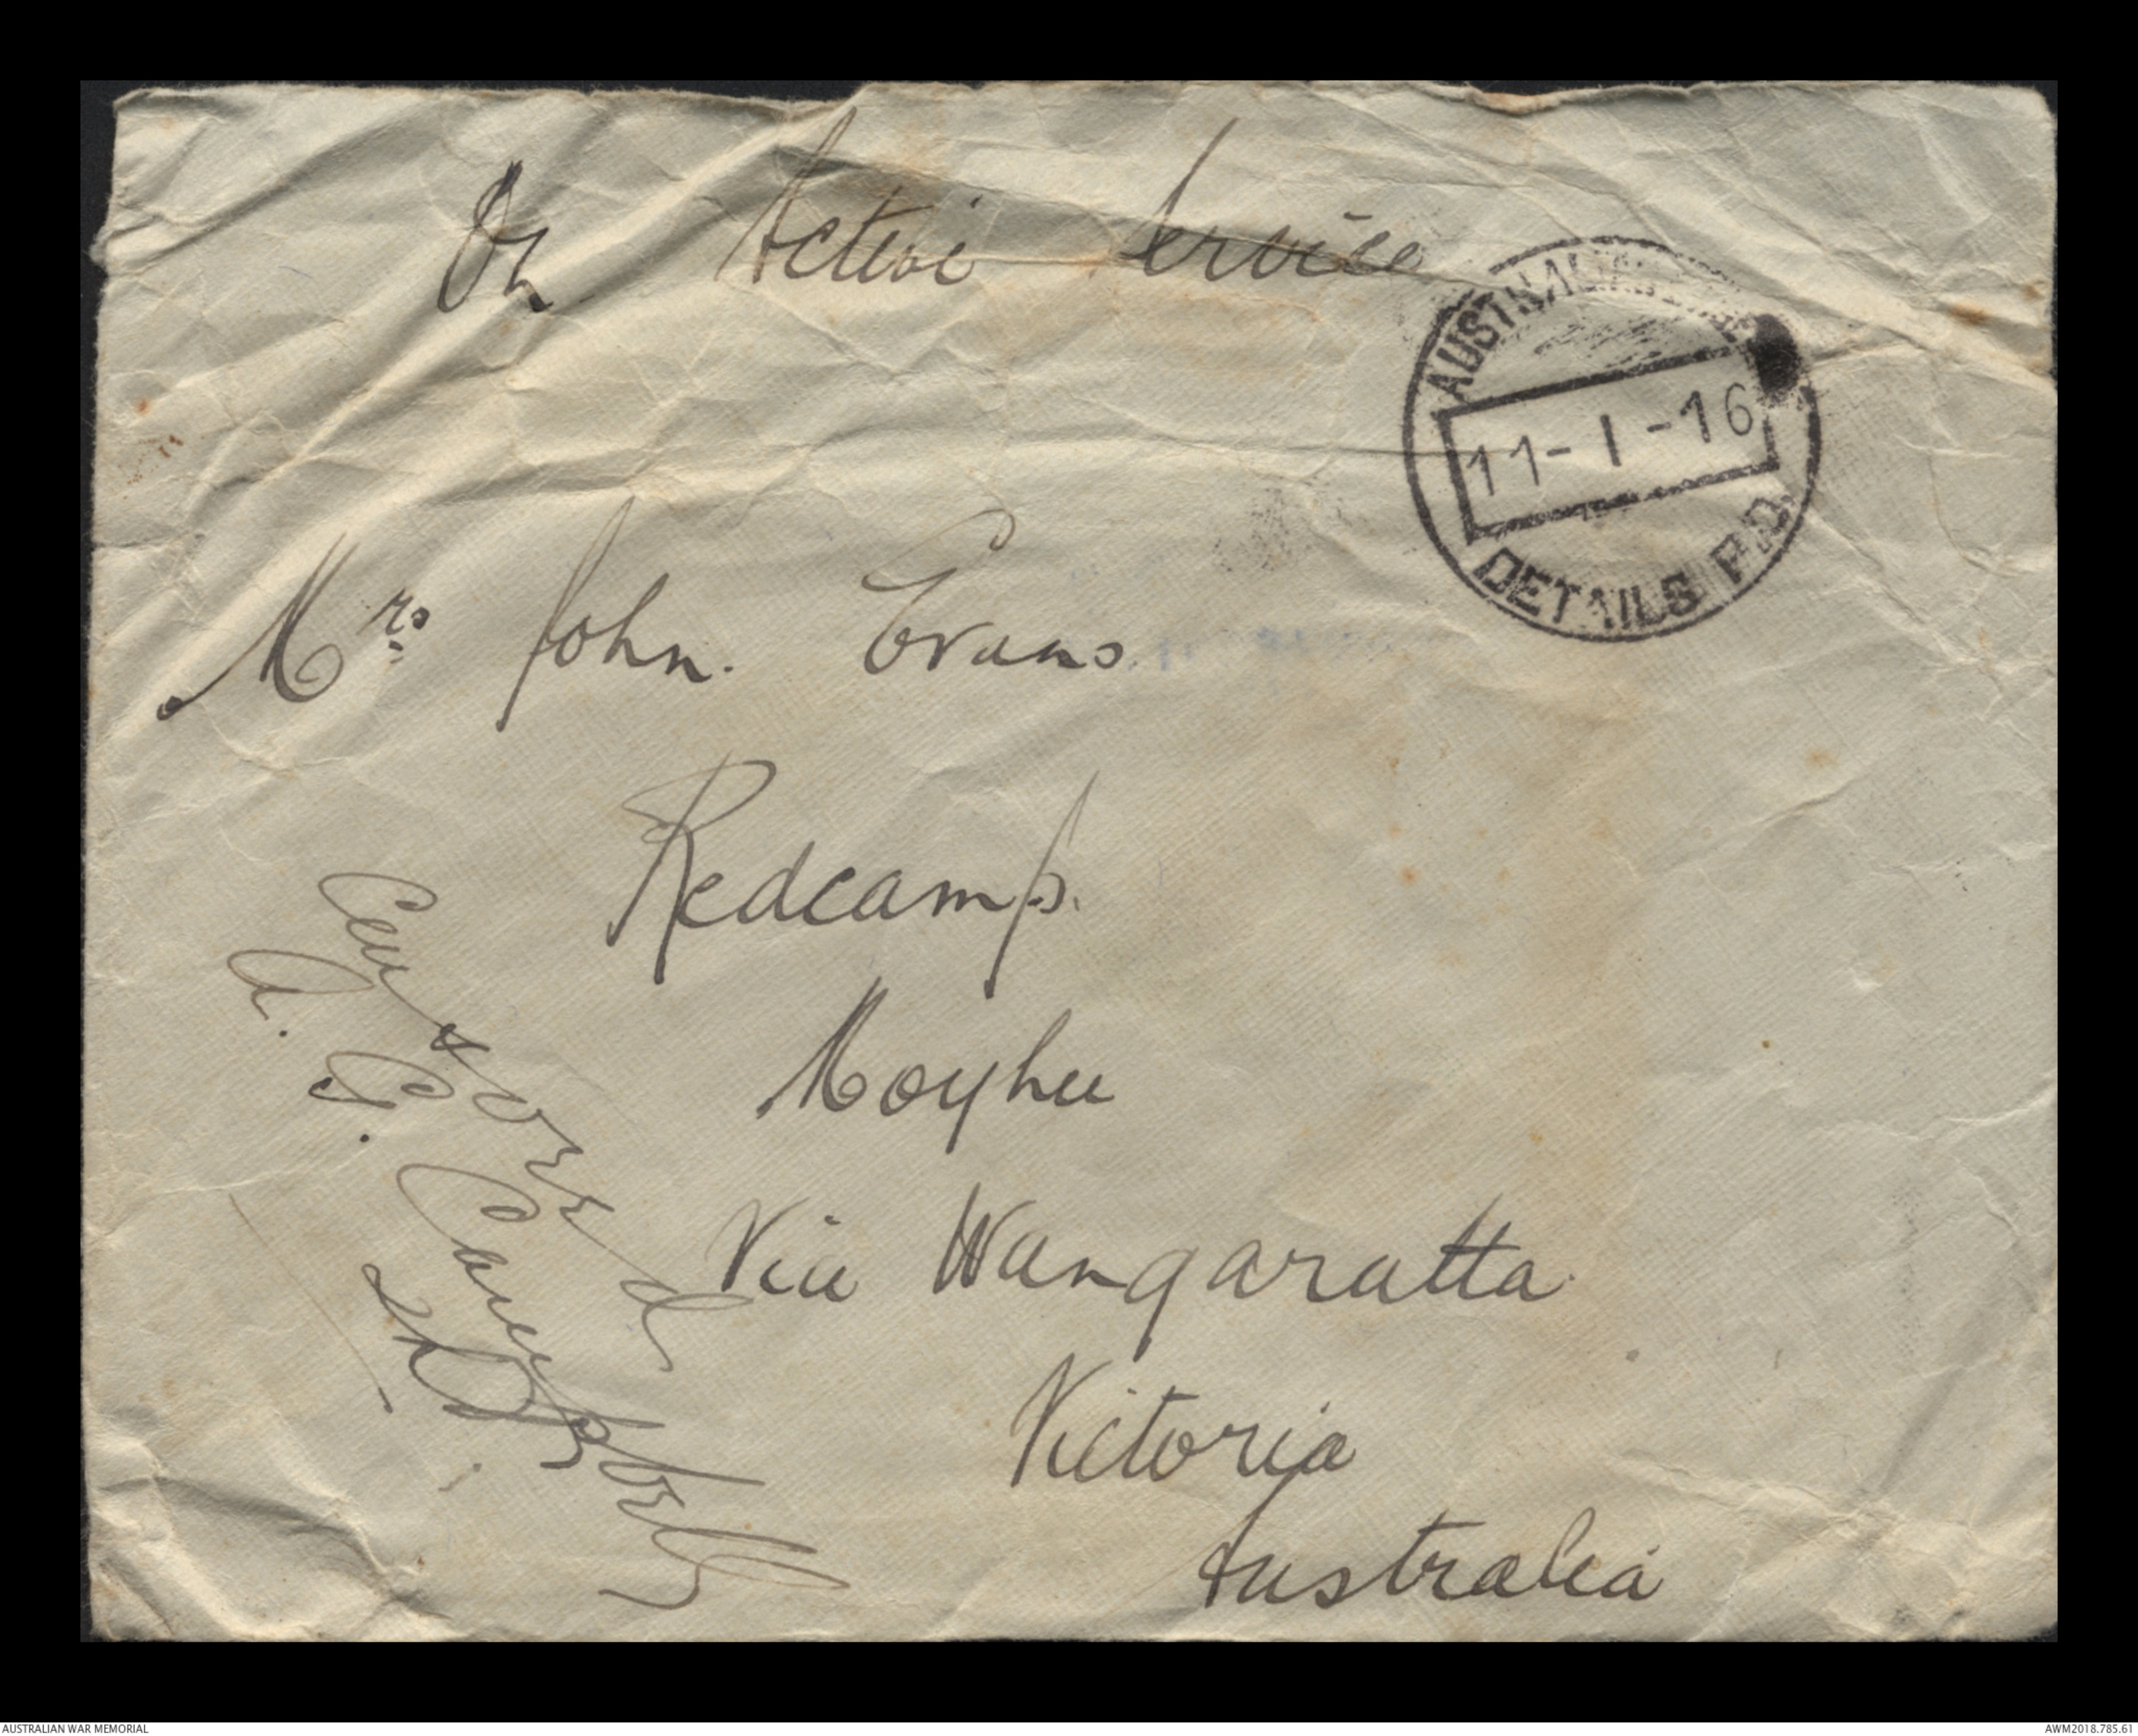 On Active Service
AUSTRALIAN
11-1-16
DETAILS P.D.
Mrs John. Evans
Redcamp.
Moyhu
Via Wangaratta
Victoria
Australia
Censored
A. C. Campbell
AUSTRALIAN WAR MEMORIAL
AWM2018.785.61